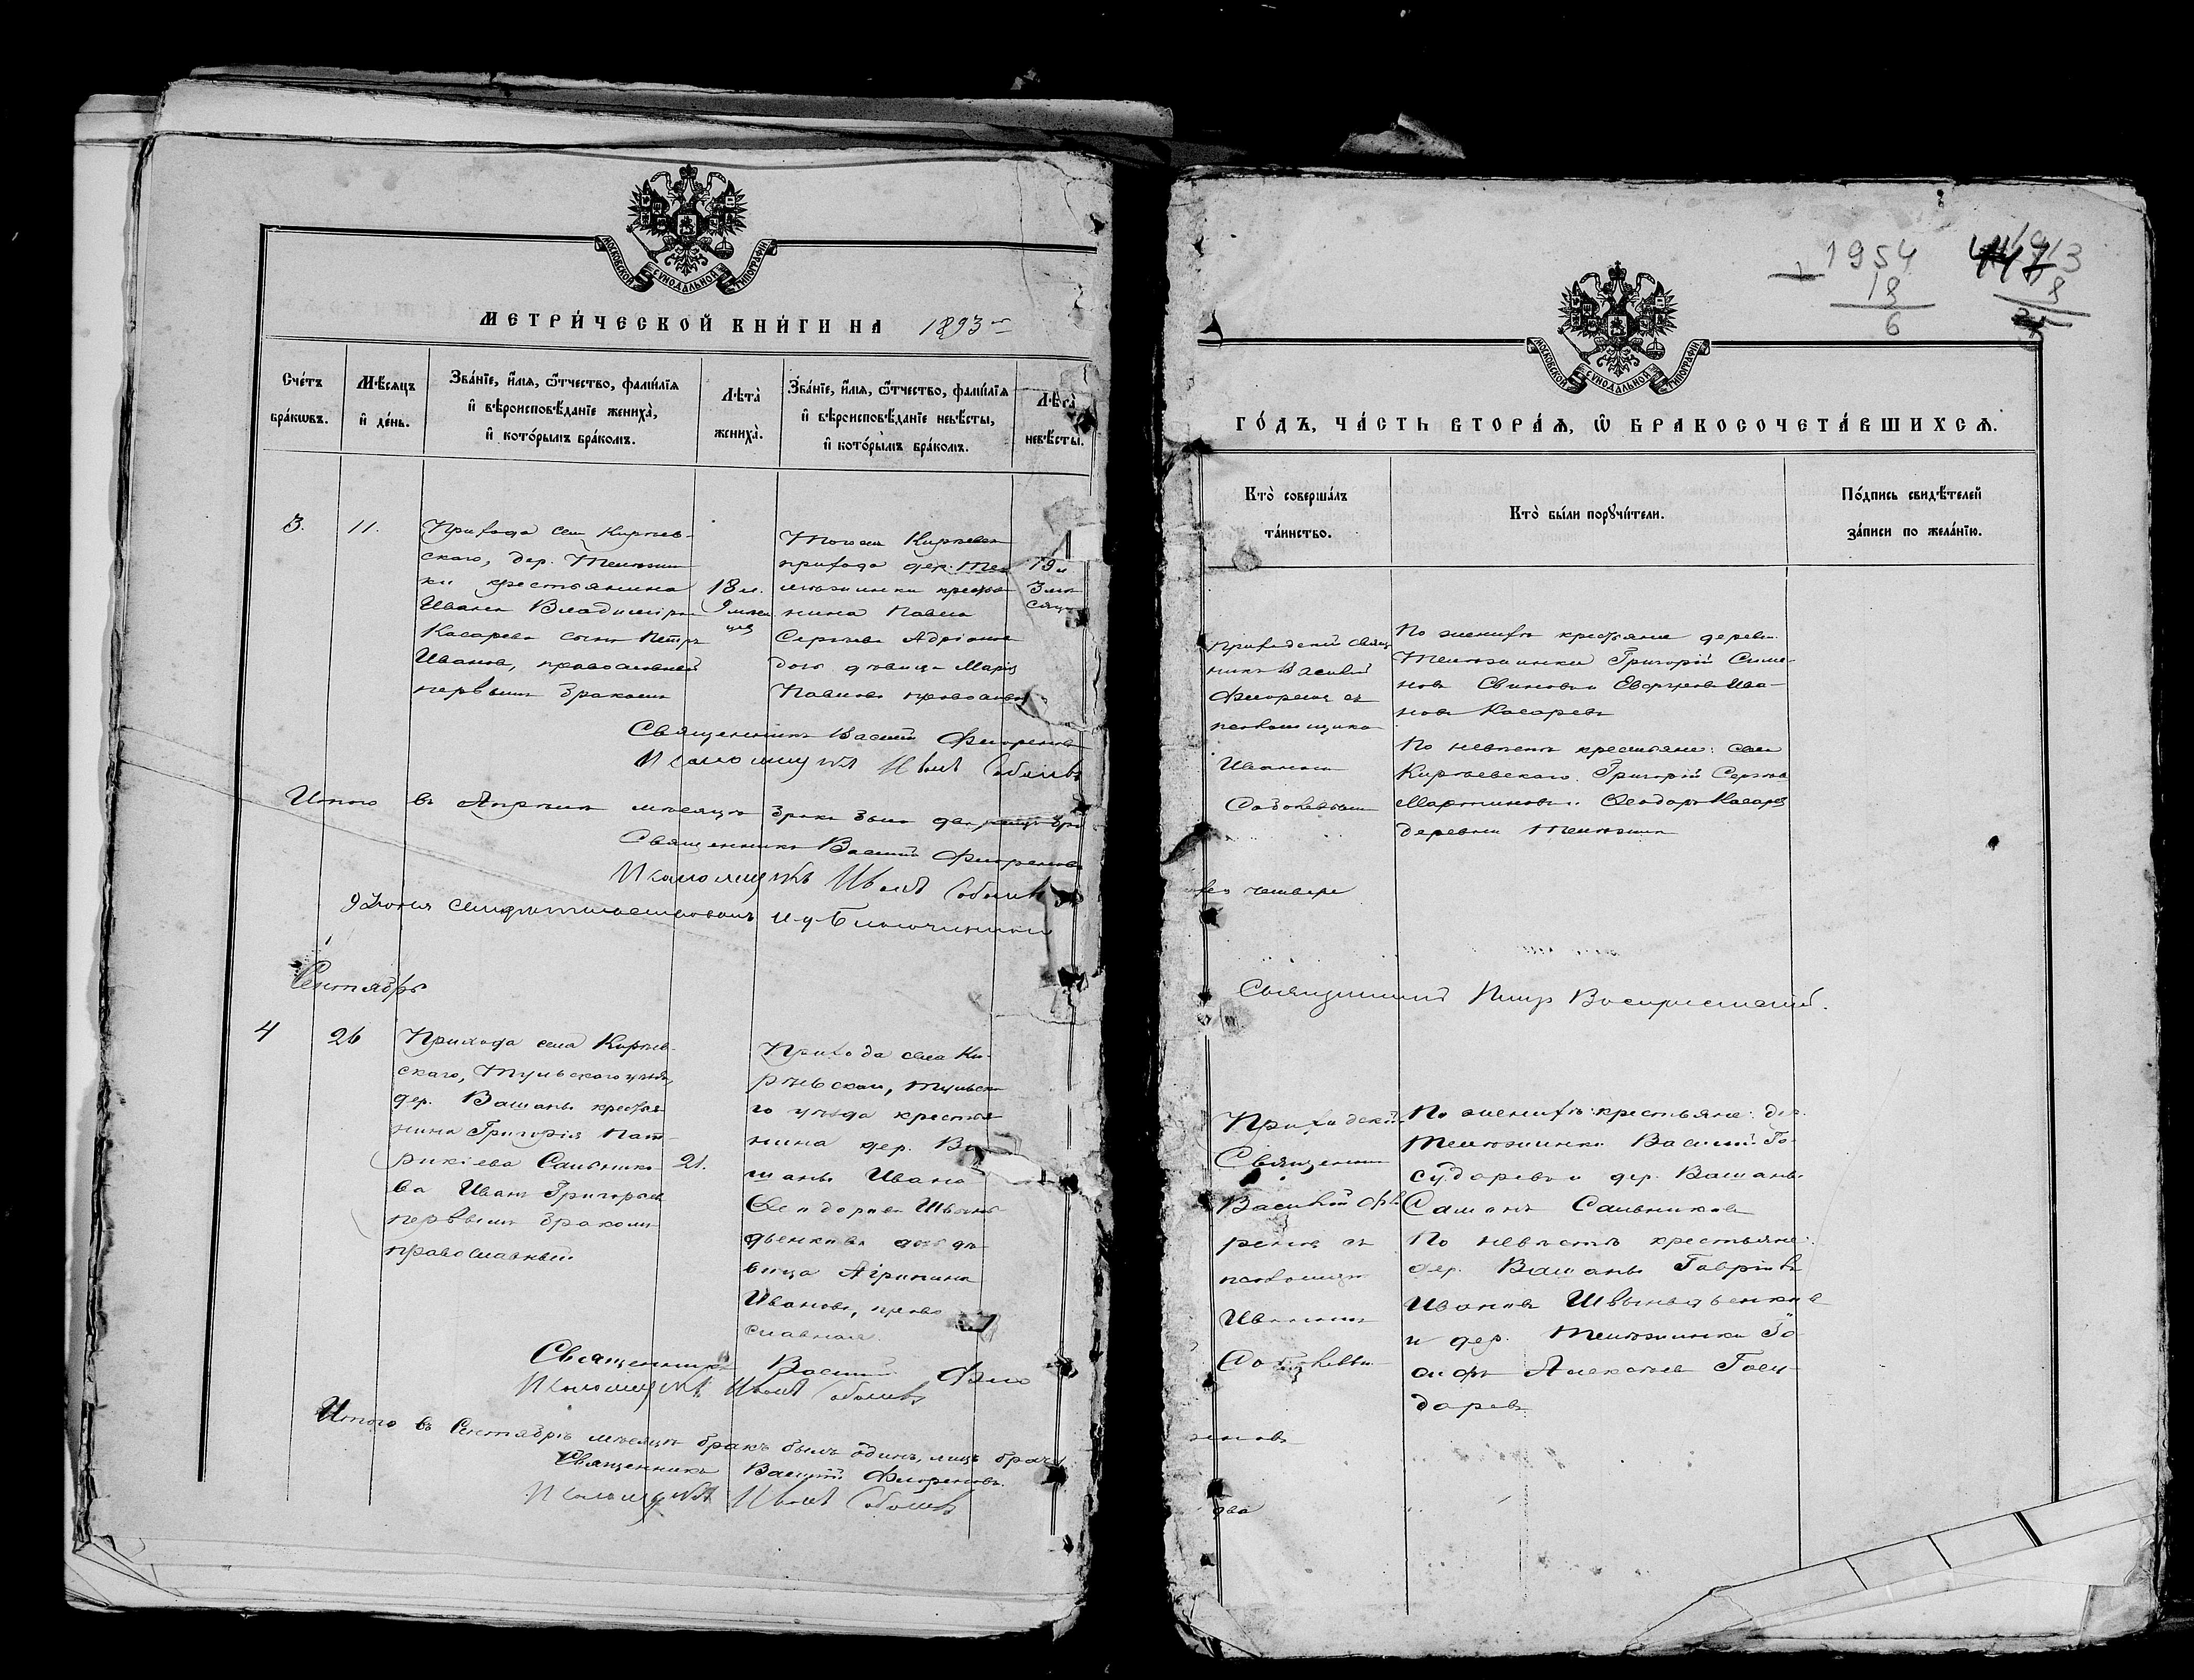 МОСКОВСКОЙ СѴНОДАЛЬНОЙ ТИПОГРАФІИ
МЕТРИ́ЧЕСКОЙ КНИ́ГИ НА 1893 г
Сче́тъ
бра́кѡвъ.
Мѣ́сяцъ
и҆ де́нь.
Зва́нїе, и҆́мѧ, ѻ҆́тчество, фами́лїѧ
и҆ вѣроисповѣ́данїе жениха̀,
и҆ кото́рымъ бра́комъ.
Лѣта̀
жениха̀.
Зва́нїе, и҆́мѧ, ѻ҆́тчество, фами́лїѧ
и҆ вѣроисповѣ́данїе невѣ́сты,
и҆ кото́рымъ бра́комъ.
Лѣта̀
невѣ́сты.
3.
11.
Прихода села Киреев-
скаго, дер. Телюжин
ки крестьянина
Ивана Владиміро
Касарева сынъ Петръ
Ивановъ, православный
первымъ бракомъ
18 л.
9 меся
цев
Тогоже
прихода дер. Те
люжинки кресть
нина Павла
Сергѣева
дочь дѣвица Марія
Павлова православ
19 л
3 мѣ
сяца
Священникъ Василій Флореновъ
Псаломщикъ Иванъ Соболевъ
Итого въ Апрѣлѣ мѣсяцѣ
Священникъ Василій Флореновъ
Псаломщикъ Иванъ Соболевъ
9 Іюня
Сентябрь
4
26
Прихода села Киреев-
скаго, Тульского уѣзда,
дер. Вашаны крестья
нина Григорія Пат-
рикіева Сальнико-
ва Иванъ Григорьев
первымъ бракомъ
православный
21.
Прихода села Ки-
реевскаго, Тульска
го уѣзда крестья
нина дер. Ва
шаны Ивана
Ѳеодорова Швынь
дьенкова дочь дѣ
вица Агрипина
Иванова, право
славная.
Священникъ Василій Фло
Псаломщикъ Иванъ Соболевъ
Итого въ Сентябрѣ мѣсяцѣ бракъ былъ одинъ, лицъ брач
Священникъ Василій Флореновъ.
Псаломщикъ Иванъ Соболевъ
1954
18
6
МОСКОВСКОЙ СѴНОДАЛЬНОЙ ТИПОГРАФІИ
ГО́ДЪ, ЧА́СТЬ ВТОРА́Ѧ, Ѡ҆ БРАКОСОЧЕТА́ВШИХСѦ.
Кто̀ соверша́лъ
та́инство.
Кто̀ бы́ли порꙋчи́тели.
По́дпись свидѣ́телей
за́писи по жела́нїю.
Приходской свящ
никъ Василій
Флореновъ съ
псаломщико
Иваномъ
Соболевымъ
По женихѣ крестьяне дерев.
Телюжинки Григорій Симе-
новъ
новъ Касаревъ
По невѣстѣ крестьяне: села
Киреевскаго Григорій Сергѣев
Мартиновъ и Ѳеодоръ Касарев
деревни Телюжин
четверо
Священникъ Петръ Воскресенскій.
Приходской
Священник
Василій Фло
реновъ съ
псаломщи
Иваномъ
Соболевы
По женихѣ: крестьяне: дер.
Телюжинки Василій Го-
сударевъ и дер. Вашаны
Сальниковъ
По невѣстѣ крестьяне:
дер. Вашаны Гаврiилъ
Ивановъ Швыньдьенков
и дер. Телюжинки Іо-
сифъ Алексѣевъ Госу-
даревъ
реновъ
два